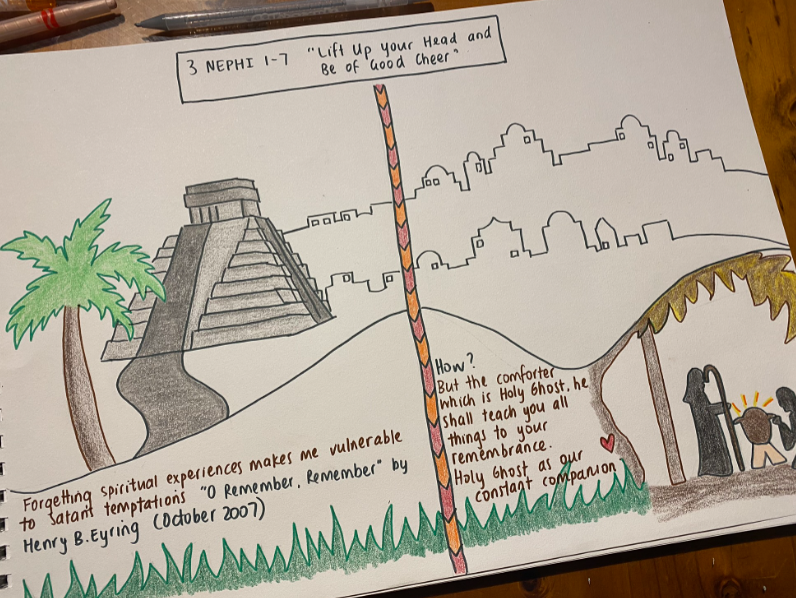 3 NEPHI 1-7 "Lift Up your Head and
Be of Good Cheer"
Forgetting spiritual experiences makes me vulnerable
to Satans temptations "O Remember, Remember" by
Henry B. Eyring (October 2007)
How?
But the comforter
which is Holy Ghost, he
shall teach you all
things to your
remembrance.
Holy Ghost as our
constant companion